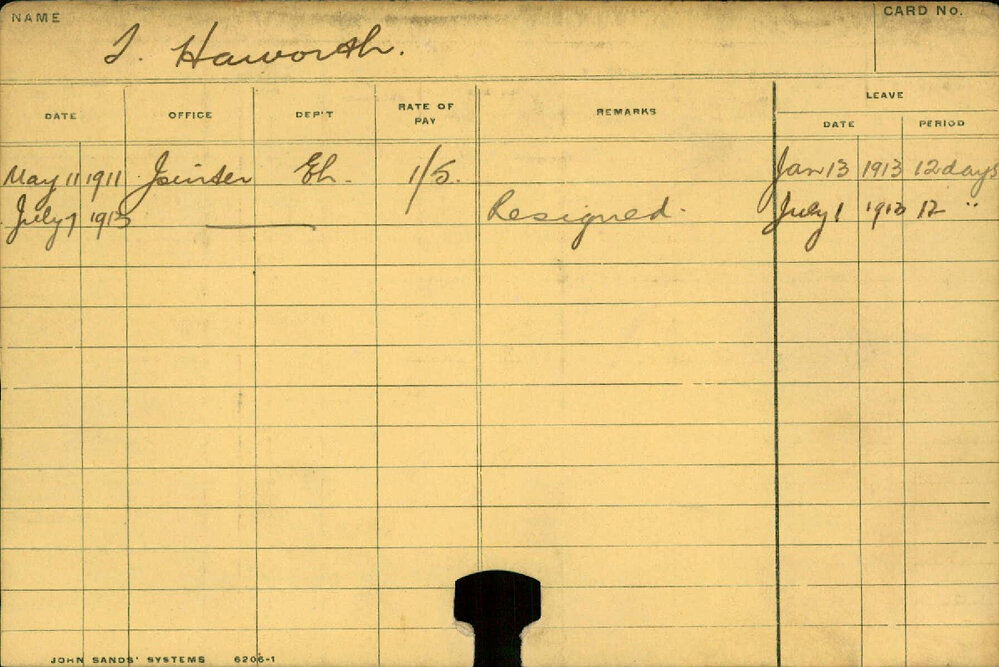 NAME
CARD No.
J. Haworth.
DATE OFFICE DEP'T RATE OF PAY REMARKS LEAVE
DATE PERIOD
May 11 1911 Jointer Eh. 1/5. Jan 13 1913 12 days
July 7 1913 Resigned. July 1 1913 12 "
JOHN SANDS' SYSTEMS 6206-1